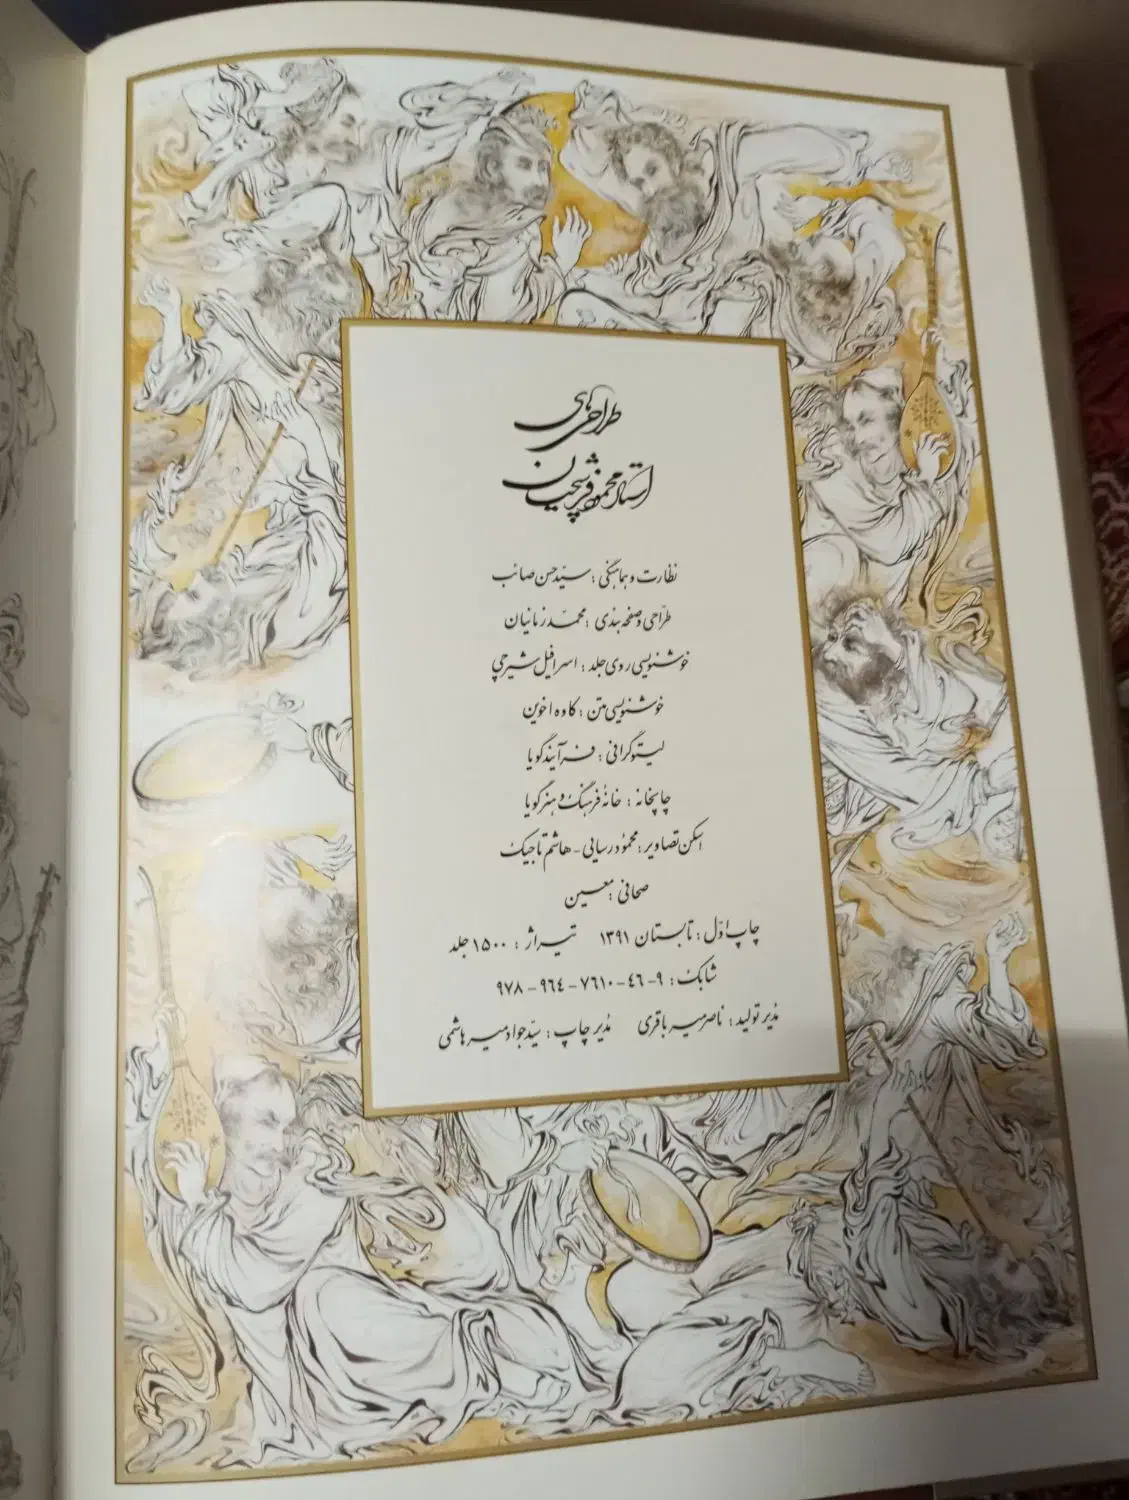 طراحی‌های
استاد محمود فرشچیان
نظارت و هماهنگی : سیّد حسن صائب
طرّاحی و صفحه‌بندی : محمّد زمانیان
خوشنویسی روی جلد : اسرافیل شیرچی
خوشنویسی متن : کاوه اخوین
لیتوگرافی : فرآیند گویا
چاپخانه : خانهٔ فرهنگ و هنر گویا
اسکن تصاویر : محمود رسایی - هاشم تاجیک
صحافی : معین
چاپ اوّل : تابستان ۱۳۹۱ تیراژ : ۱۵۰۰ جلد
شابک : ۹-۴۶-۷۶۱۰-۹۶۴-۹۷۸
مدیر تولید : ناصر میرباقری مدیر چاپ : سیّد جواد میرهاشمی